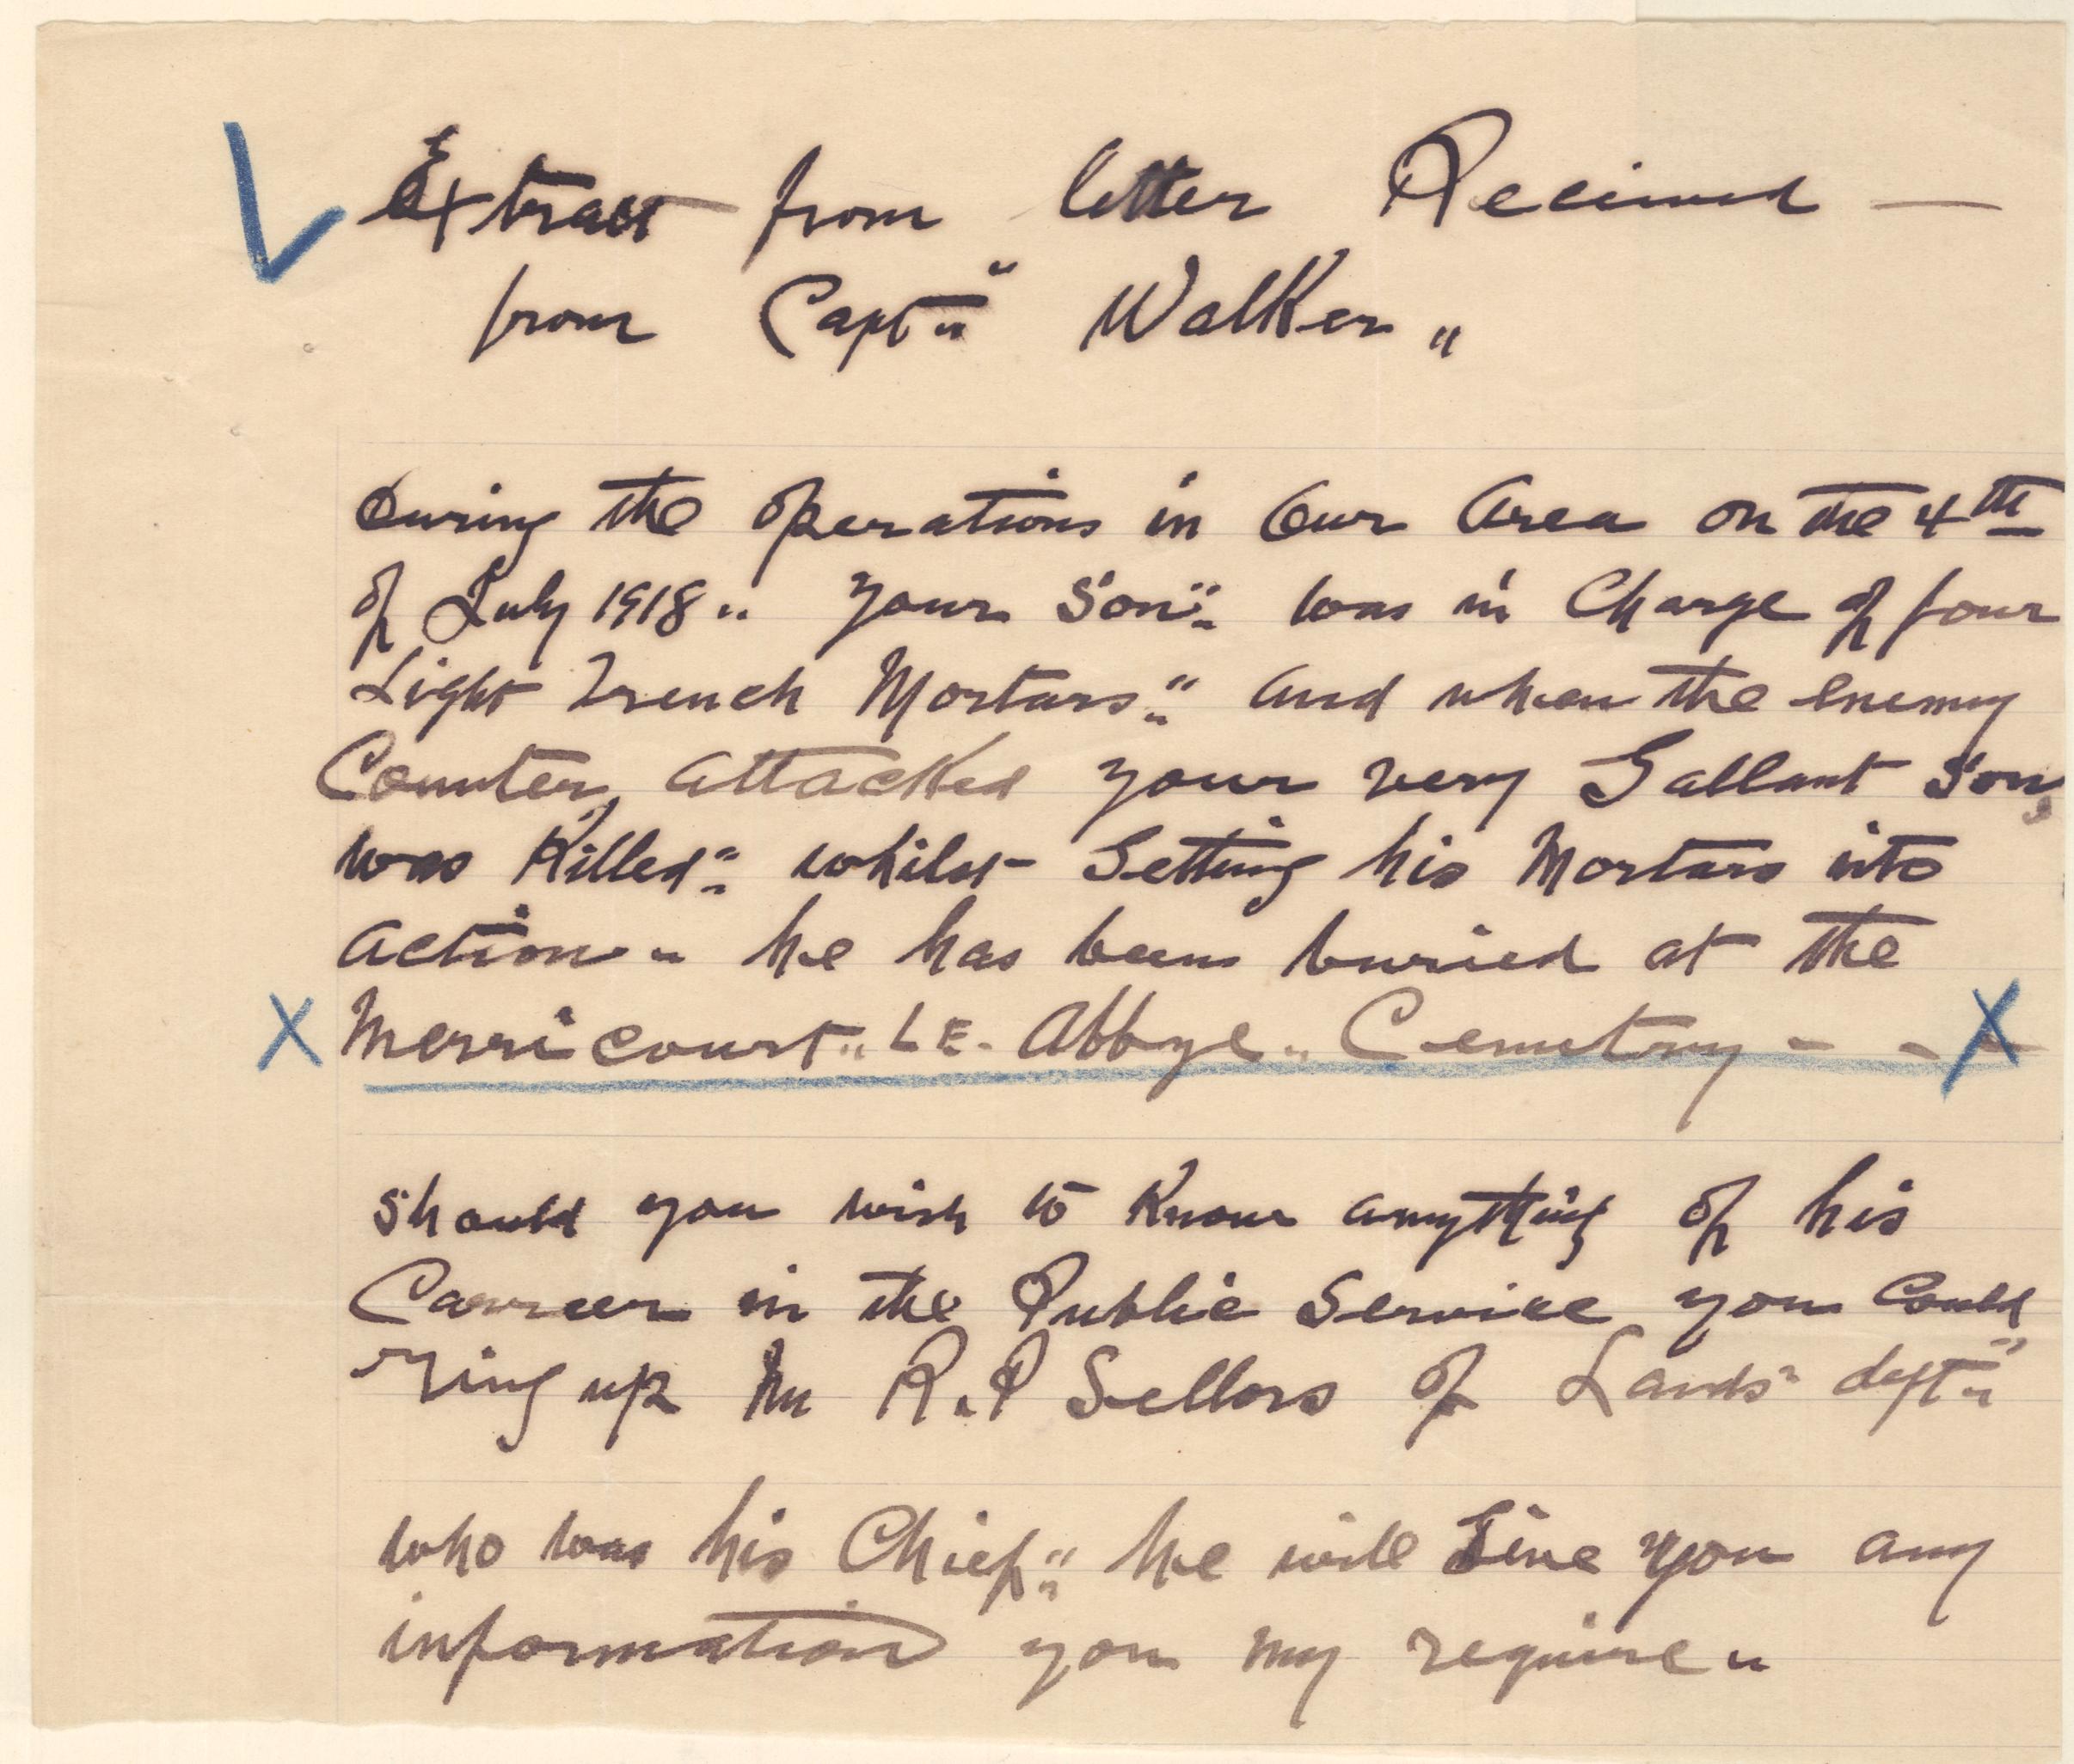 Extract from letter Recieved —
from Capt" Walker "
During the operations in Our Area on the 4th
of July 1918 " your son " was in Charge of four
Light Trench Mortars " and when the enemy
Counter, attacked your very Gallant Son,
was Killed " whilst Getting his Mortars into
action " he has been buried at the
X Merricourt " LE. Abbye " Cemetry - - - X
should you wish to Know anything of his
Carreer in the Public Service you Could
ring up Mr R.P Sellors of Lands dept"
who was his Chief " he will Give you any
information you my require "